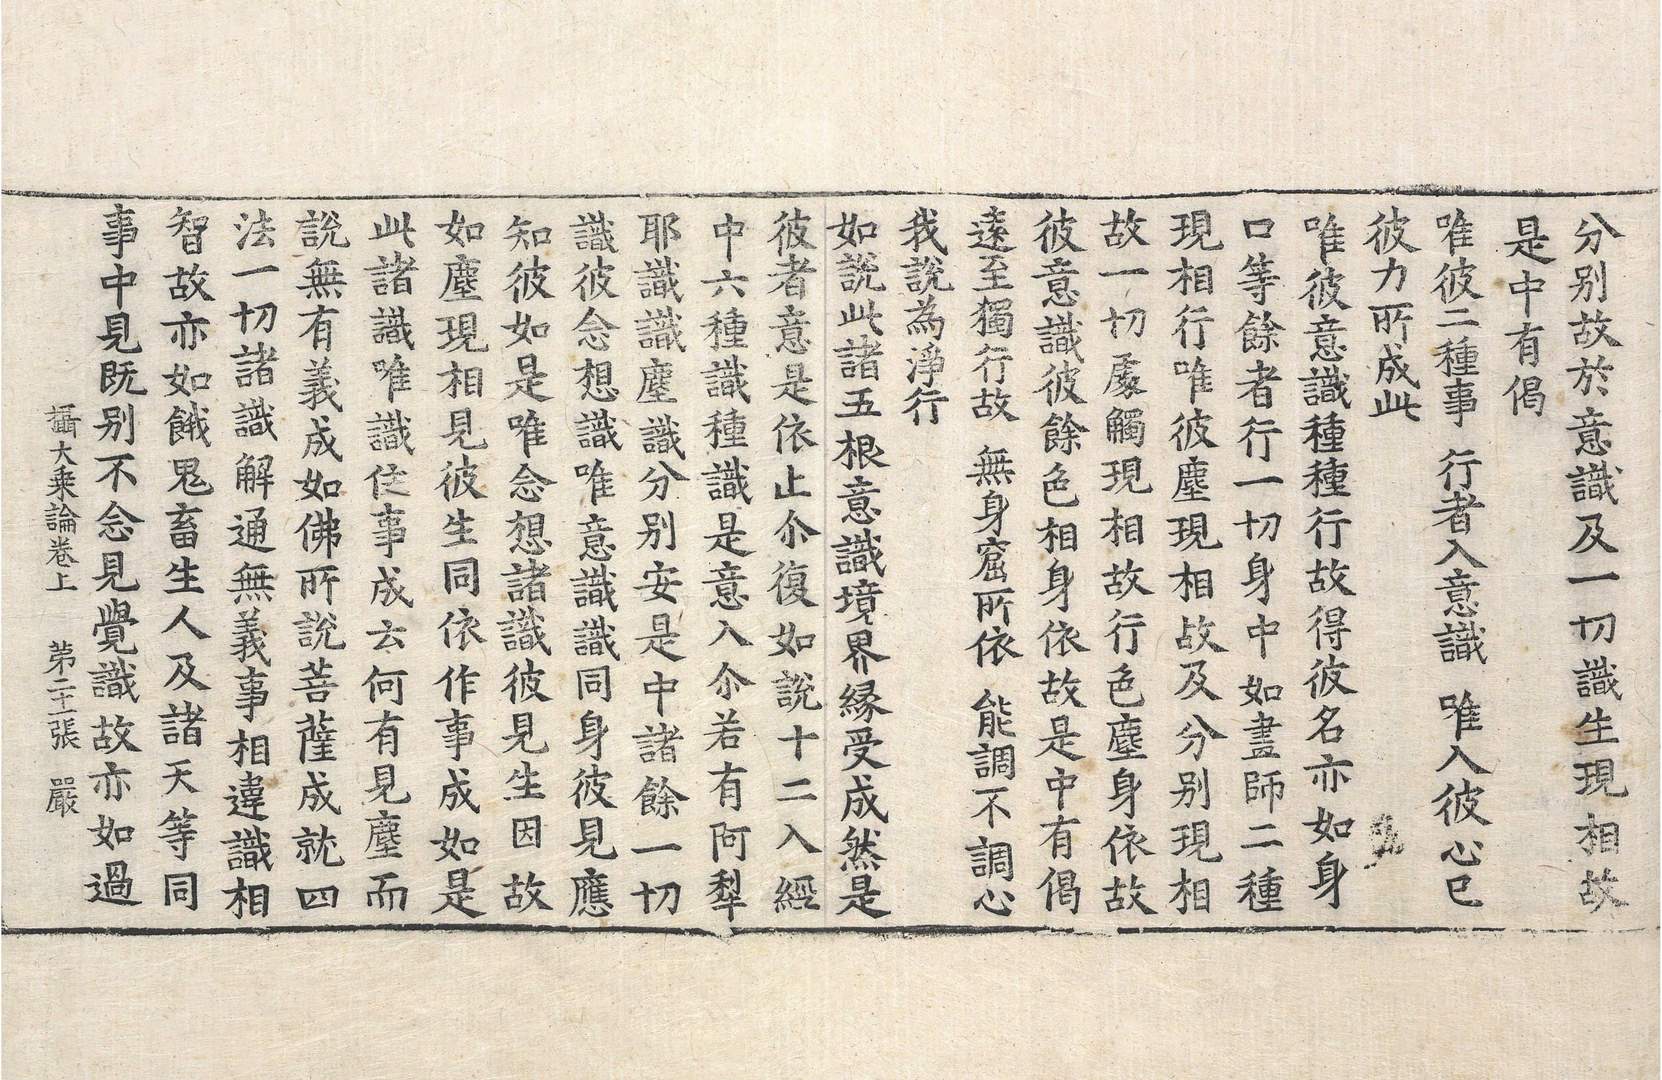 分别故於意識及一切識生現相故
是中有偈
唯彼二種事 行者入意識 唯入彼心已
彼力所成此
唯彼意識種種行故得彼名亦如身
口等餘者行一切身中如畫師二種
現相行唯彼塵現相故及分别現相
故一切處觸現相故行色塵身依故
彼意識彼餘色相身依故是中有偈
遠至獨行故 無身窟所依 能調不調心
我說為淨行
如說此諸五根意識境界緣受成然是
彼者意是依止尒復如說十二入經
中六種識種識是意入尒若有阿犁
耶識識塵識分别安是中諸餘一切
識彼念想識唯意識識同身彼見應
知彼如是唯念想諸識彼見生因故
如塵現相見彼生同依作事成如是
此諸識唯識住事成去何有見塵而
說無有義成如佛所說菩薩成就四
法一切諸識解通無義事相違識相
智故亦如餓鬼畜生人及諸天等同
事中見既别不念見覺識故亦如過
攝大乘論卷上 第二十張 嚴